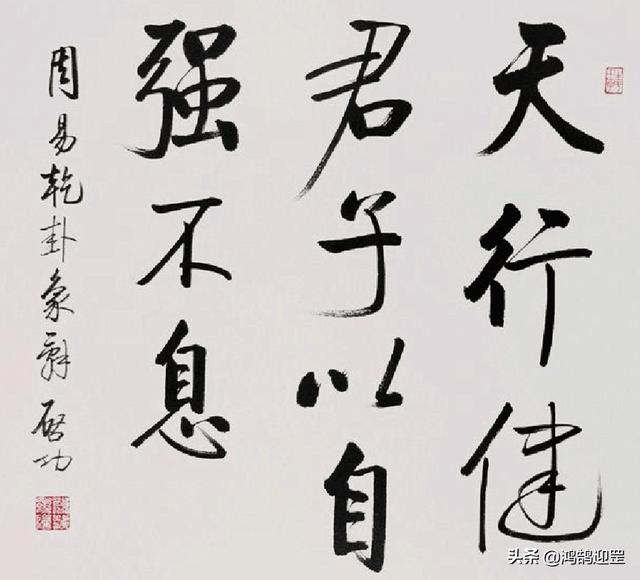 天行健
君子以自
强不息
周易乾卦象辞 启功
头条 @鸿鹄迎罡